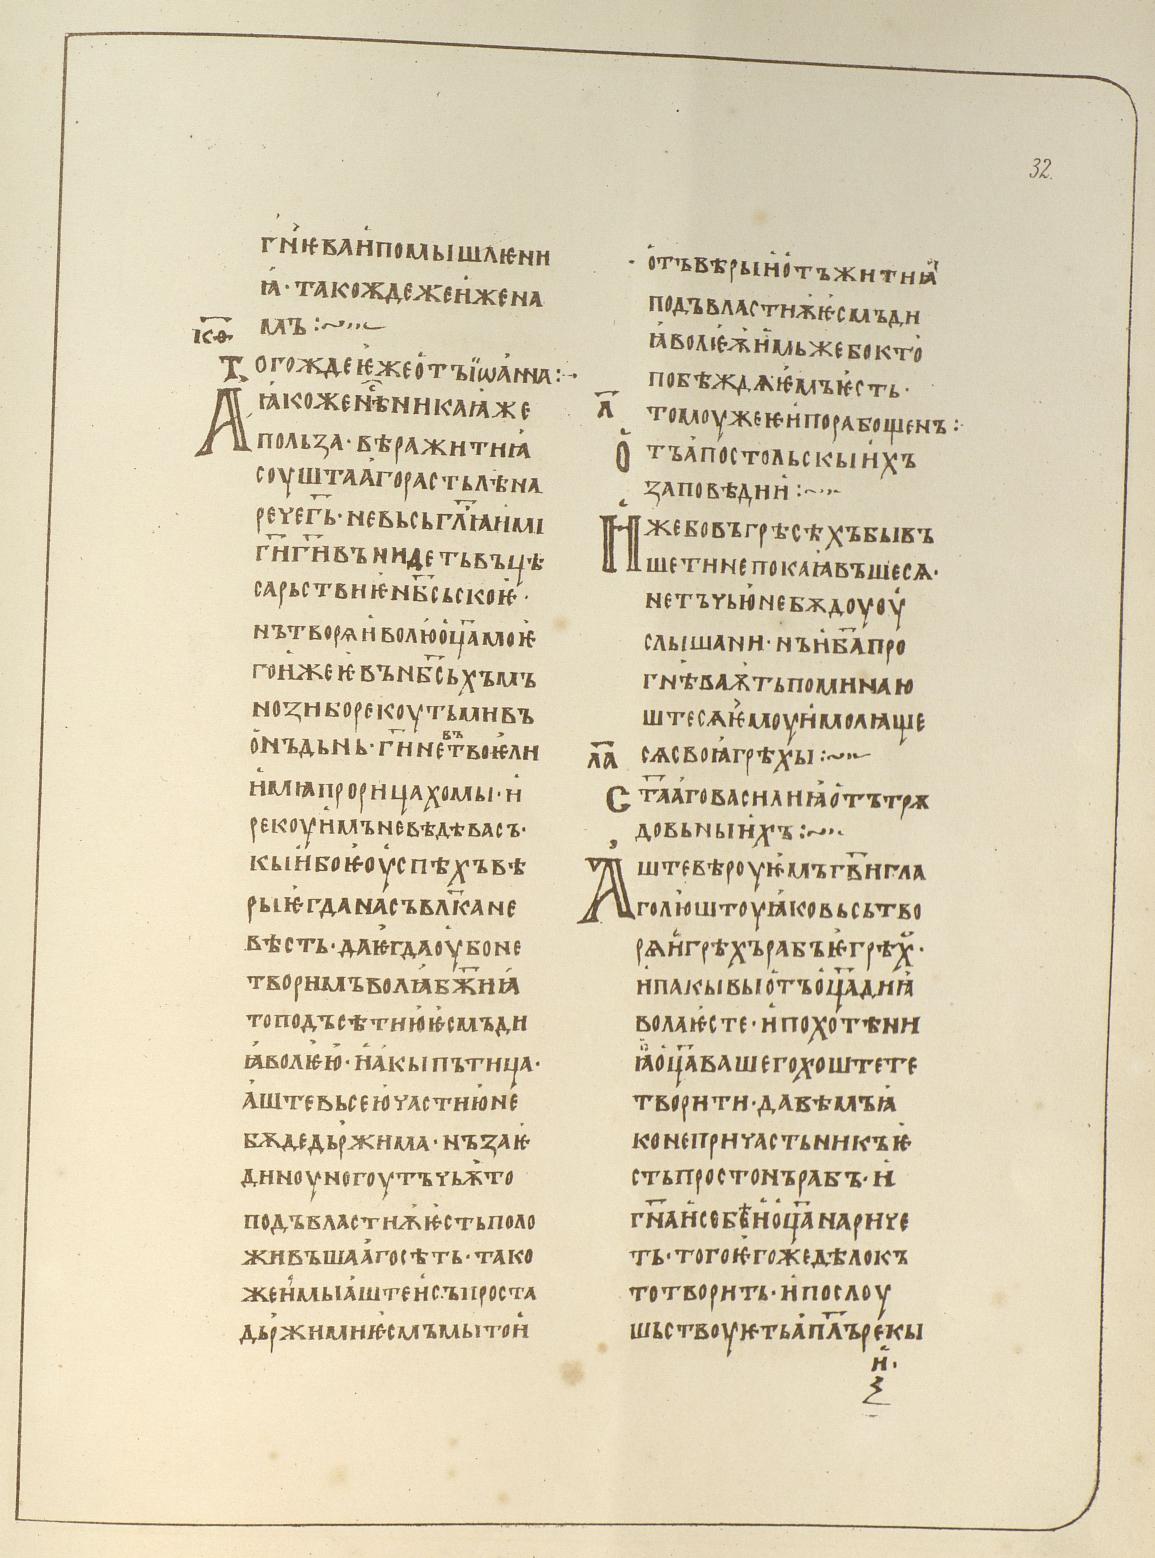 32.
гнѥваипомышлѥни
ꙗ·такождежеижена
мъ:~
к҃ѳ
тогождеѥжеотъіѡанна:·
Аꙗкоженѣ҃сникаꙗже
польза·вѣражитиꙗ
соуштаагорастьлѣна
речегь҃·невьсьгл҃ꙗимі
ги҃ги҃вънидетьвъцѣ
сарьствиѥнб҃сьскоѥ·
нътворѧиволюоц҃амоѥ
гоижеѥвънб҃сьхъмъ
нозиборекоутьмивъ
онъдьнь·ги҃нетвъвоѥли
имꙗпрорицахомы·и
рекоуимъневѣдѣвасъ·
кыибоѥоуспѣхъвѣ
рыѥгданасъвлк҃ане
вѣсть·даѥгдаоубоне
творимъволꙗбж҃иꙗ
топодъсѣтиюѥсмъди
ꙗволѥю·иакыпътица·
аштевьсеючастиюне
бѫдедьржима·нъзаѥ
диноуногоутъчьѭто
подъвластиѭѥстьполо
живъшаагосѣть·тако
жеимыаштеисъпроста
дьржимиѥсмъмытои
отъвѣрыиотъжитиꙗи
подъвластиѭѥсмъди
ꙗволѥѭимьжебокто
побѣждаѥмъѥсть·
томоужеѥипорабощенъ:
л҃
отъапостольскыихъ
заповѣдии:~
Ижебовъгрѣсѣхъбывъ
шетинепокаꙗвъшесѧ·
нетъчьюнебѫдоуоу
слышани·нъиба҃про
гнѣваѭтьпоминаю
штесѧѥмоуимолꙗще
сѧсвоꙗгрѣхы:~
ла҃
ста҃аговасилиꙗотътрѫ
довьныихъ:~
Аштевѣроуѥмъгв҃игла
голюштоуꙗковьсьтво
рѧигрѣхърабъѥгрѣх·
ипакывыотъоц҃адиꙗ
волаѥсте·ипохотѣни
ꙗоц҃авашегохоштете
творити·давѣмъꙗ
конепричастьникъѥ
стьпростонърабъ·и
гн҃аисебеиоц҃анариче
ть·тогоѥгожедѣлокъ
тотворить·ипослоу
шьствоуѥтьапл҃ърекы
и·